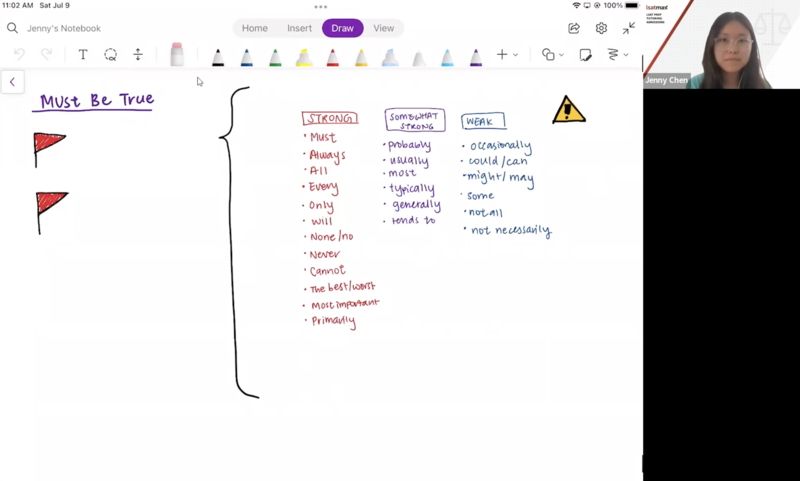 11:02 AM Sat Jul 9
100%
Jenny's Notebook
Home Insert Draw View
T
Must Be True
STRONG
• Must
• Always
• All
• Every
• Only
• will
• None/no
• Never
• Cannot
• The best/worst
• Most important
• Primarily
SOMEWHAT
STRONG
• probably
• usually
• most
• typically
• generally
• tends to
WEAK
• occasionally
• could/can
• might/may
• some
• not all
• not necessarily
lsatmax
LSAT PREP
TUTORING
ADMISSIONS
Jenny Chen